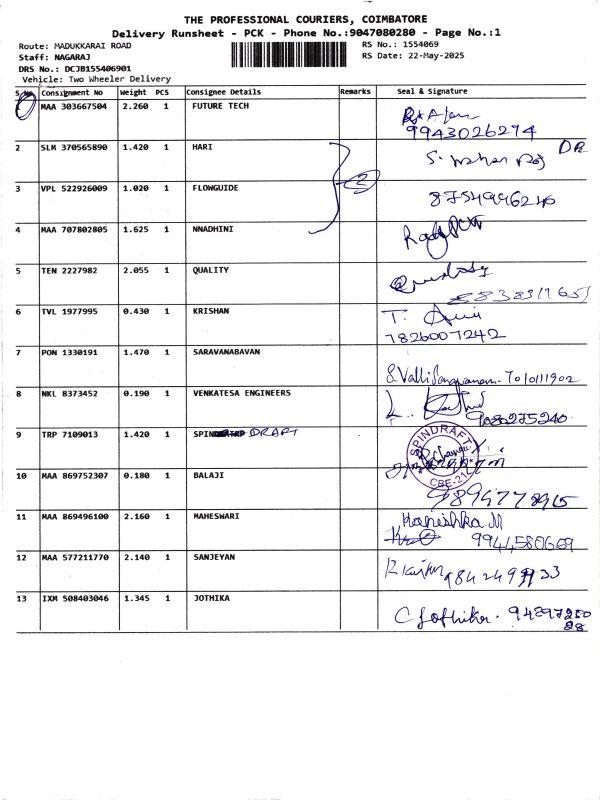 THE PROFESSIONAL COURIERS, COIMBATORE
Delivery Runsheet - PCK - Phone No.:9047080280 - Page No.:1
Route: MADUKKARAI ROAD
RS No.: 1554069
Staff: NAGARAJ
RS Date: 22-May-2025
DRS No.: DCJB155406901
Vehicle: Two Wheeler Delivery
S.No Consignment No Weight PCS Consignee Details Remarks Seal & Signature
MAA 303667504 2.260 1 FUTURE TECH
9943026274
2 SLM 370565890 1.420 1 HARI
3 VPL 522926009 1.020 1 FLOWGUIDE
8754996240
4 MAA 707802805 1.625 1 NNADHINI
5 TEN 2227982 2.055 1 QUALITY
6 TVL 1977995 0.430 1 KRISHAN T.
7826007242
7 PON 1330191 1.470 1 SARAVANABAVAN
8 NKL 8373452 0.190 1 VENKATESA ENGINEERS
9080275240
9 TRP 7109013 1.420 1 SPIN DRAFT
SPINDRAFT
CBE-21
10 MAA 869752307 0.180 1 BALAJI
11 MAA 869496100 2.160 1 MAHESWARI Hanishka.M
9944580669
12 MAA 577211770 2.140 1 SANJEYAN
13 IXM 508403046 1.345 1 JOTHIKA C Jothika. 94897280
88